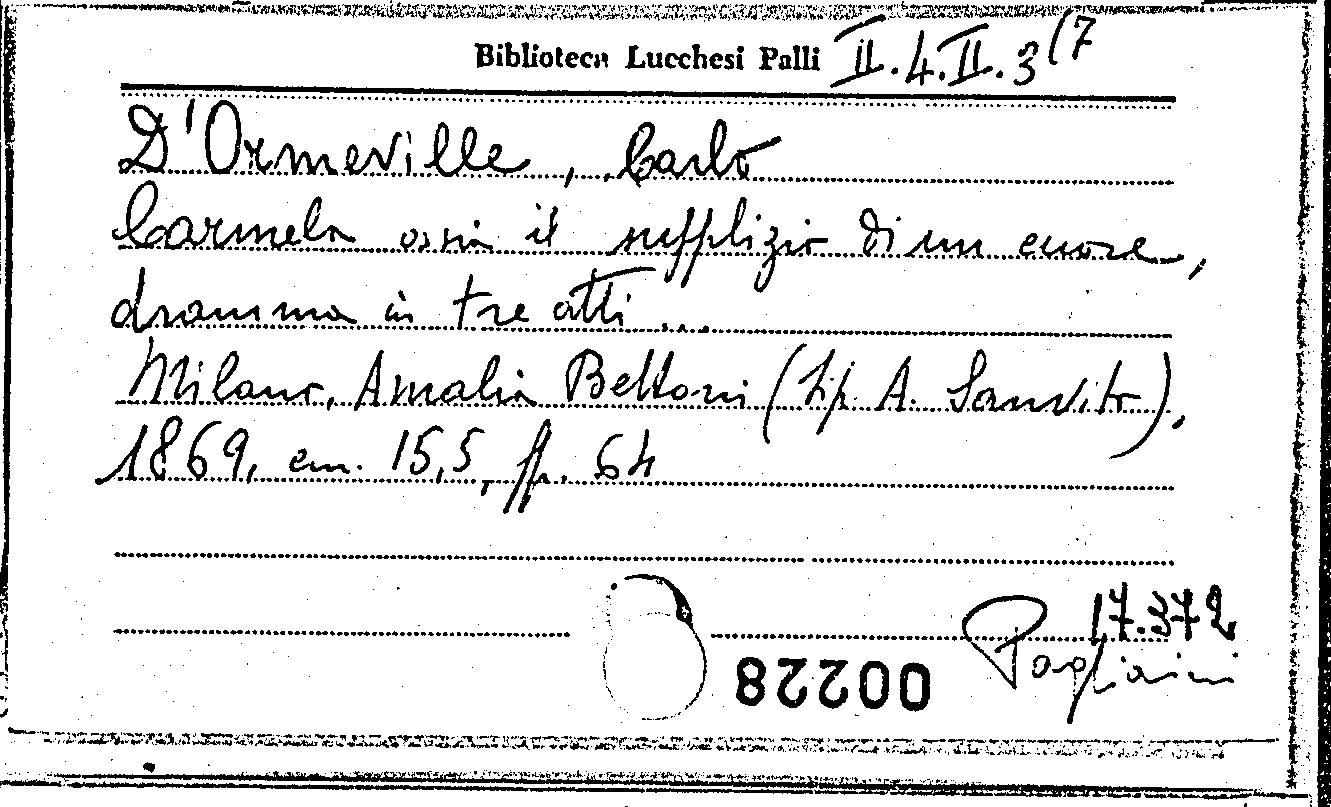 Biblioteca Lucchesi Palli II.4.II.3(7
D'Ormeville, Carlo
Carmela ossia il supplizio di un cuore,
dramma in tre atti...
Milano, Amalia Bettoni (tip. A. Sanvito),
1869, cm. 15,5, pp. 64
17.372
00228
Pagliaini